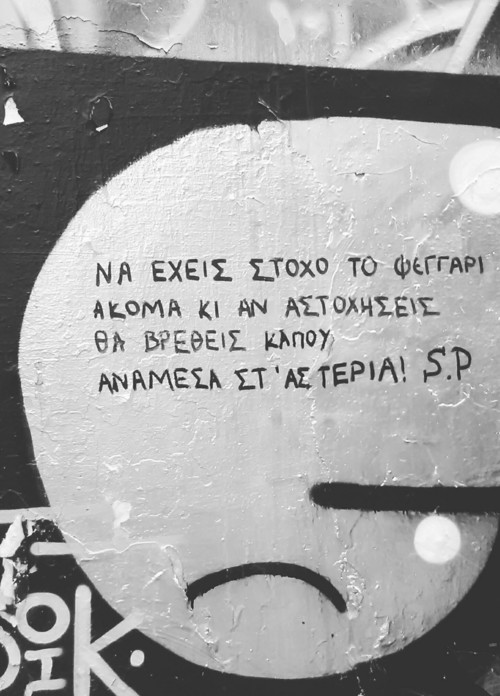 ΝΑ ΕΧΕΙΣ ΣΤΟΧΟ ΤΟ ΦΕΓΓΑΡΙ
ΑΚΟΜΑ ΚΙ ΑΝ ΑΣΤΟΧΗΣΕΙΣ
ΘΑ ΒΡΕΘΕΙΣ ΚΑΠΟΥ
ΑΝΑΜΕΣΑ ΣΤ'ΑΣΤΕΡΙΑ! S.P